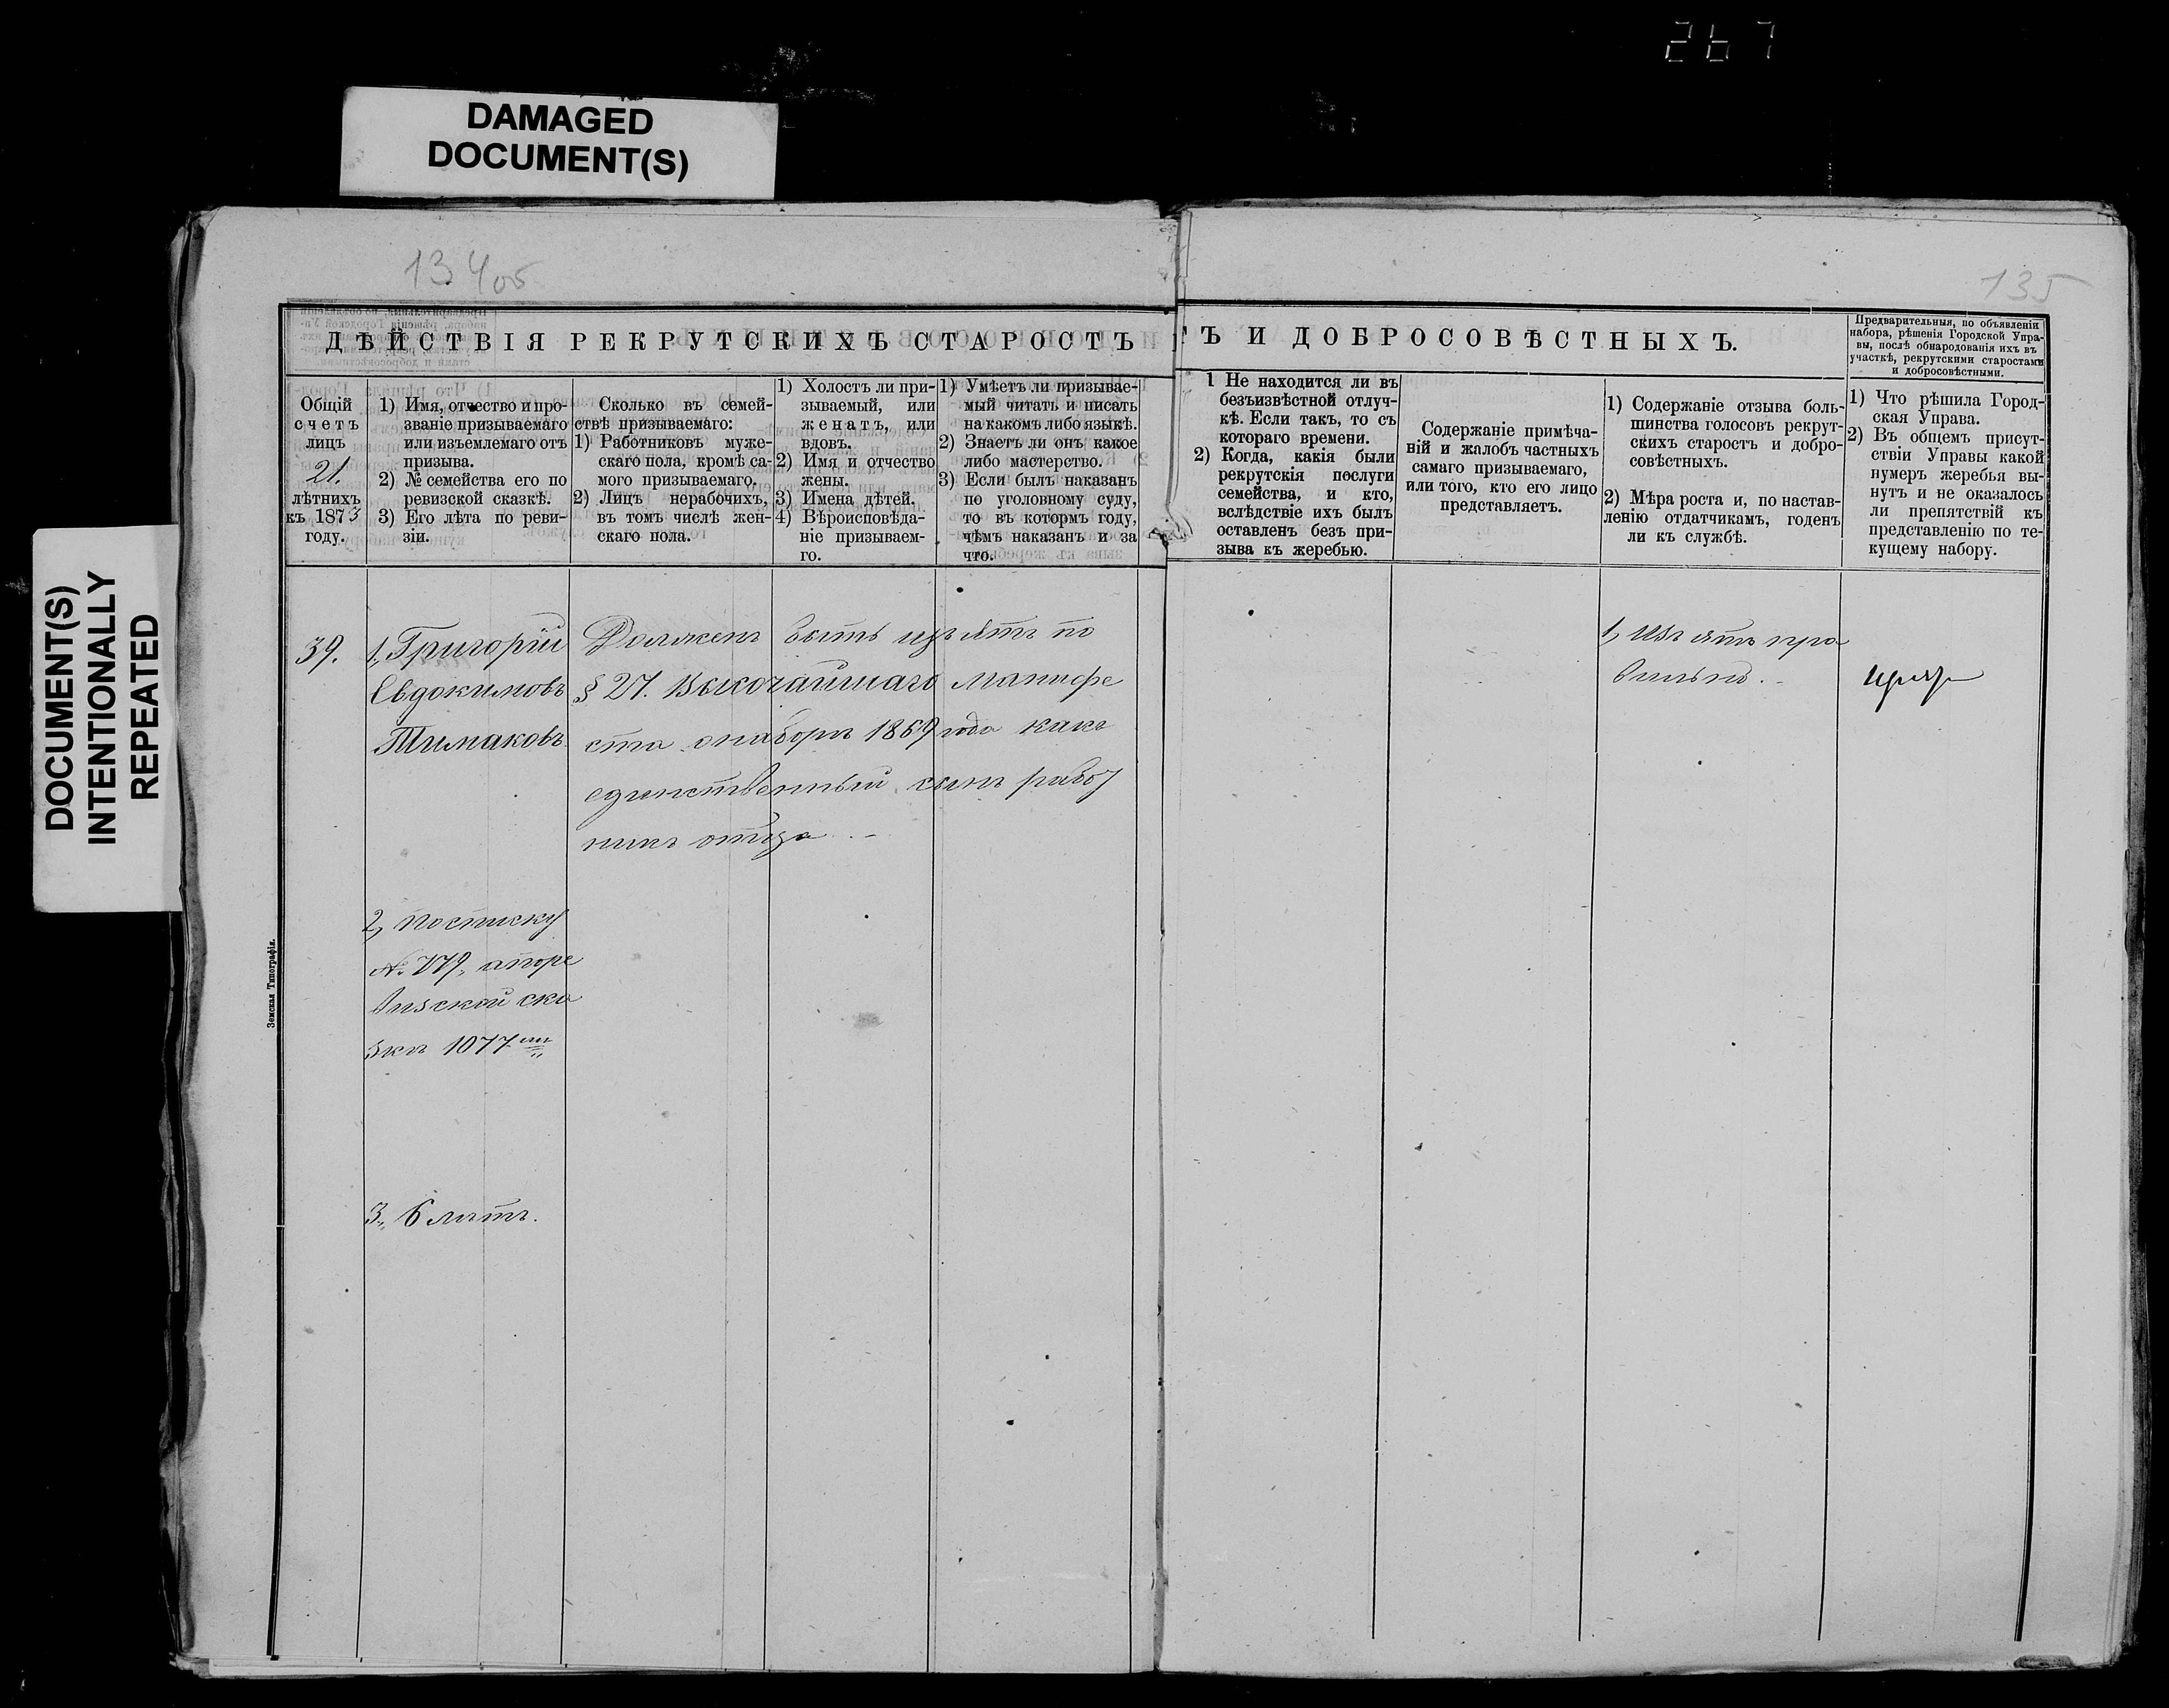 267
DAMAGED
DOCUMENT(S)
DOCUMENT(S)
INTENTIONALLY
REPEATED
134об
135
ДѢЙСТВІЯ РЕКРУТСКИХЪ СТАРОСТЪ
ТЪ И ДОБРОСОВѢСТНЫХЪ.
Предварительныя, по объявленіи
набора, рѣшенія Городской Упра-
вы, послѣ обнародованія ихъ въ
участкѣ, рекрутскими старостами
и добросовѣстными.
Общій
счетъ
лицъ
21.
лѣтнихъ
къ 1873
году.
1) Имя, отчество и про-
званіе призываемаго
или изъемлемаго отъ
призыва.
2) № семейства его по
ревизской сказкѣ.
3) Его лѣта по реви-
зіи.
Сколько въ семей-
ствѣ призываемаго:
1) Работниковъ муже-
скаго пола, кромѣ са-
мого призываемаго.
2) Лицъ нерабочихъ,
въ томъ числѣ жен-
скаго пола.
1) Холостъ ли при-
зываемый, или
женатъ, или
вдовъ.
2) Имя и отчество
жены.
3) Имена дѣтей.
4) Вѣроисповѣда-
ніе призываем-
го.
1) Умѣетъ ли призывае-
мый читать и писать
на какомъ либо языкѣ.
2) Знаетъ ли онъ какое
либо мастерство.
3) Если былъ наказанъ
по уголовному суду,
то въ которм году,
чѣмъ наказанъ и за
что.
1 Не находится ли въ
безъизвѣстной отлуч-
кѣ. Если такъ, то съ
котораго времени.
2) Когда, какія были
рекрутскія послуги
семейства, и кто,
вслѣдствіе ихъ былъ
оставленъ безъ при-
зыва къ жеребью.
Содержаніе примѣча-
ній и жалобъ частныхъ
самаго призываемаго,
или того, кто его лицо
представляетъ.
1) Содержаніе отзыва боль-
шинства голосовъ рекрут-
скихъ старостъ и добро-
совѣстныхъ.
2) Мѣра роста и, по настав-
ленію отдатчикамъ, годенъ
ли къ службѣ.
1) Что рѣшила Город-
ская Управа.
2) Въ общемъ присут-
ствіи Управы какой
нумеръ жеребья вы-
нутъ и не оказалось
ли препятствій къ
представленію по те-
кущему набору.
39.
1, Григорій
Евдокимовъ
Тимаковъ
2, по списку
№ 779, а по ре
визской ска
зкѣ 1077
3, 6 лѣтъ.
Долженъ быть изъятъ по
§ 27. Высочайшаго манифе
ста о наборѣ 1869 года какъ
единственный сынъ работ
никъ отца
1, Изъятъ пра
вильно.
Земская Типографія.